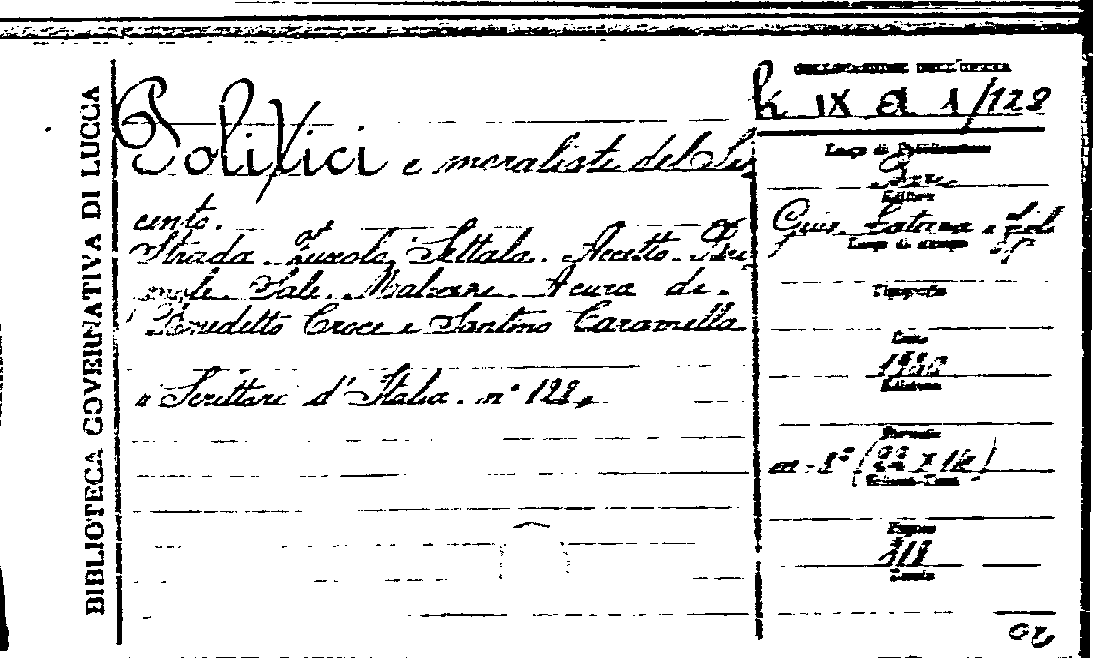 BIBLIOTECA GOVERNATIVA DI LUCCA
Politici e moralisti del Sei
cento.
Strada. Zuccolo, Settala. Accetto. Bri
gnole Sale. Malvezzi. A cura di.
Benedetto Croce e Santino Caramella
« Scrittori d'Italia. n° 128 »
COLLOCAZIONE DELL'OPERA
IX a 1/128
Luogo di Pubblicazione
Bari
Editore
Gius. Laterza e figli
Luogo di stampa
Tipografia
Anno
1930
Edizione
Formato
in - 8° (22 x 14)
Pagine
318